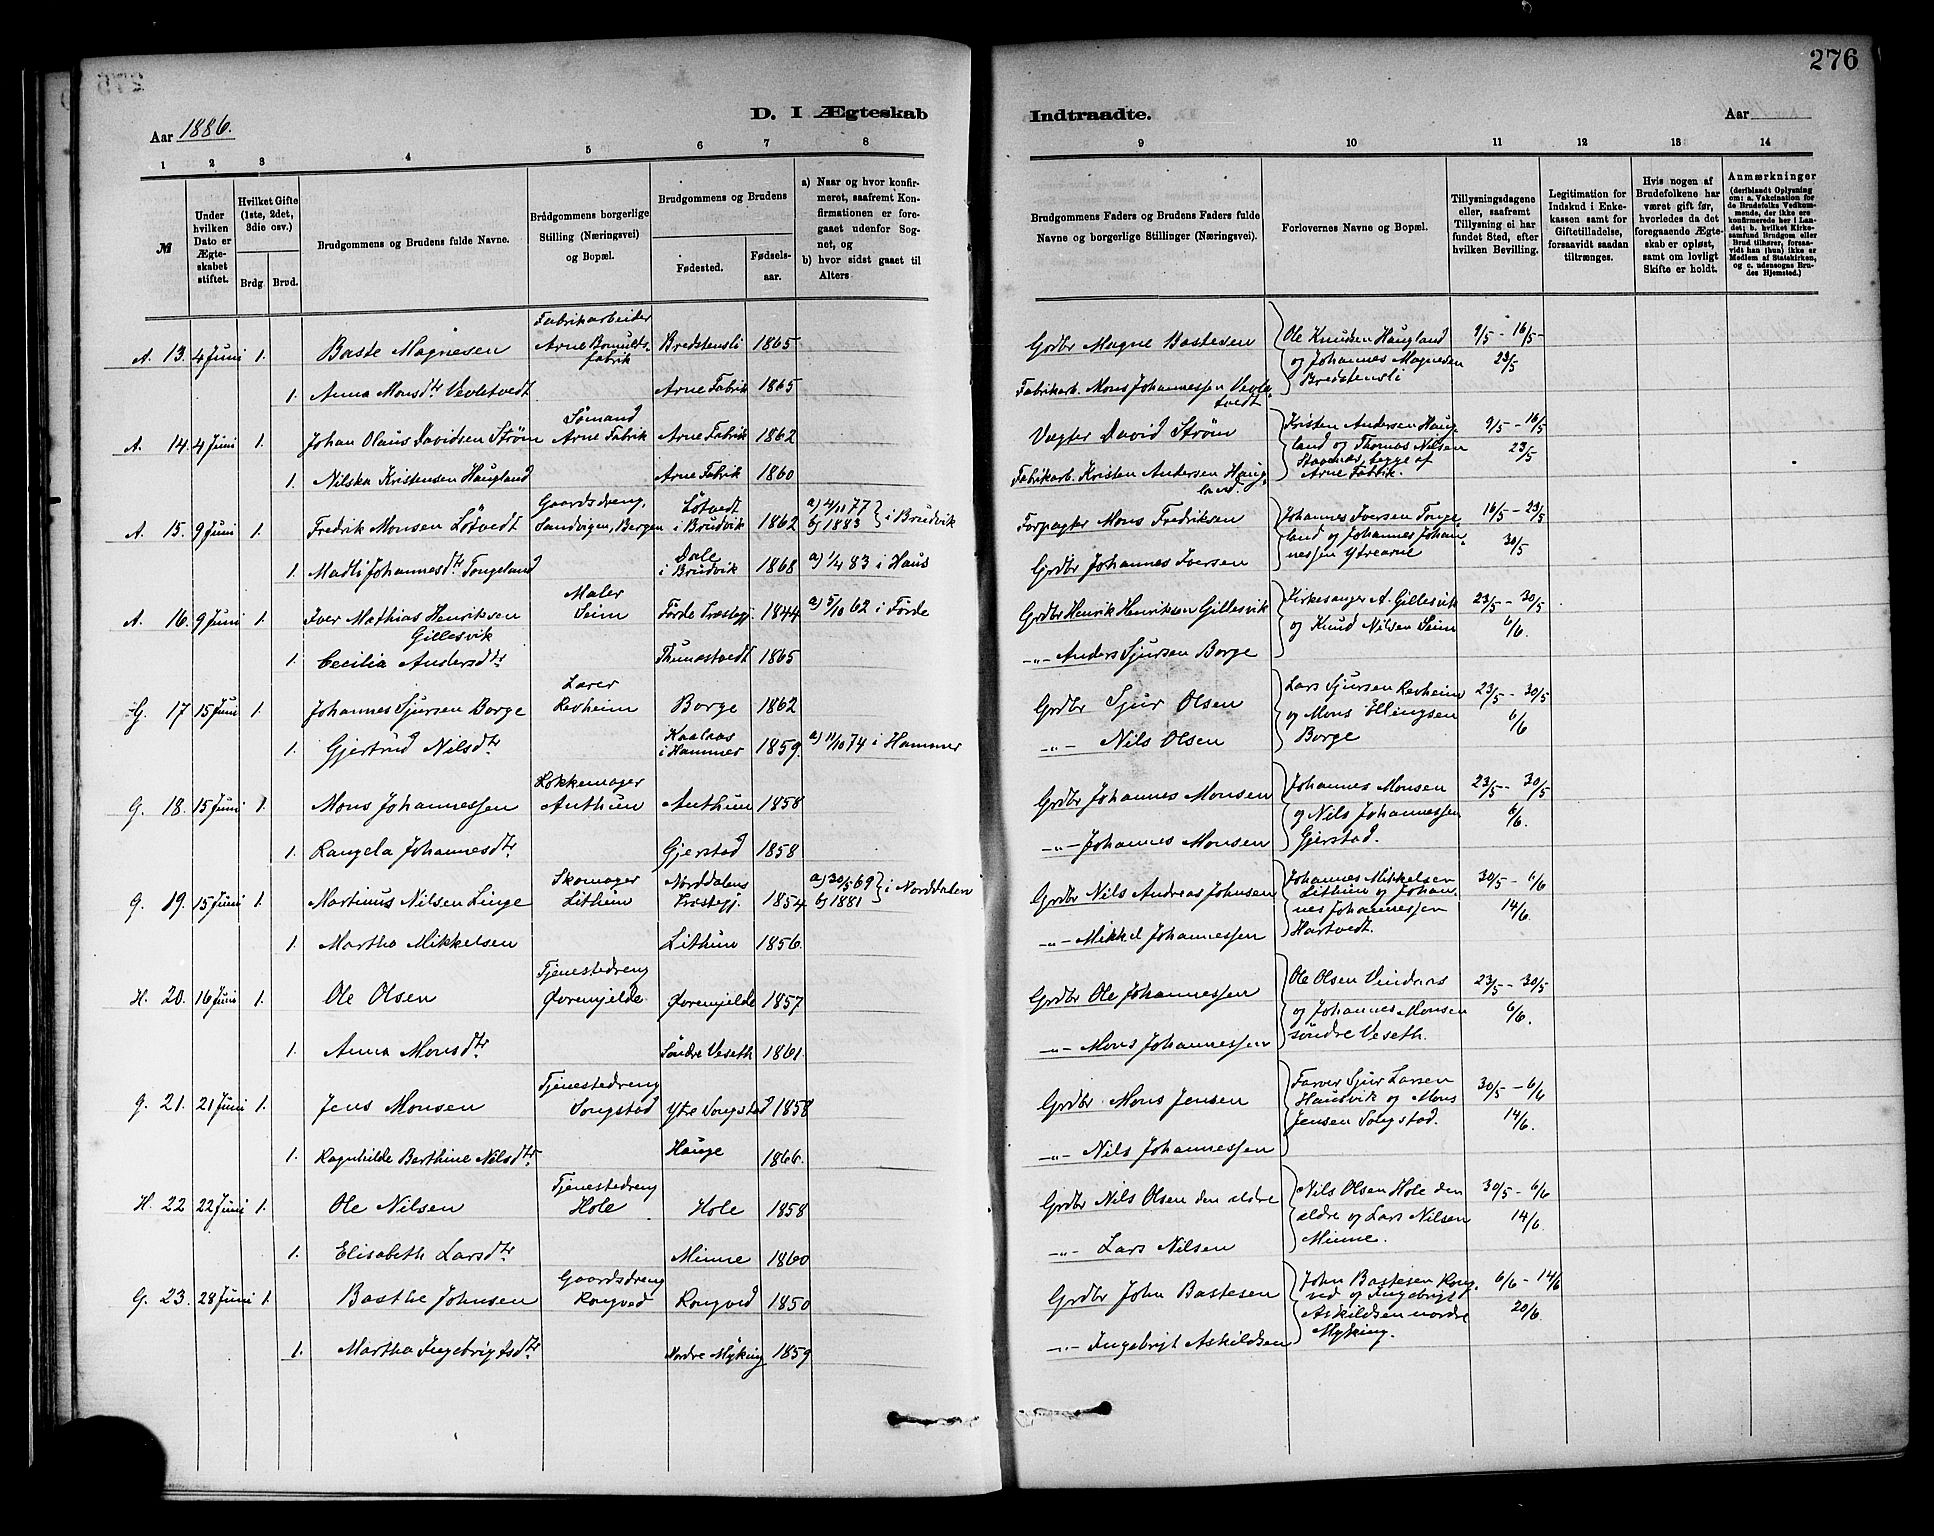 276
Aar 1886.
D. I Ægteskab
Indtraadte.
Aar
1 2 3 4 5 6 7 8
9 10 11 12 13 14
№
Under hvilken Dato er Ægteskabet stiftet.
Hvilket Gifte (1ste, 2det, 3die osv.)
Brdg. Brud.
Brudgommens og Brudens fulde Navne.
Brudgommens borgerlige Stilling (Næringsvei) og Bopæl.
Brudgommens og Brudens
Fødested. Fødselsaar.
a) Naar og hvor konfirmeret, saafremt Konfirmationen er foregaaet udenfor Sognet, og
b) hvor sidst gaaet til Alters.
Brudgommens Faders og Brudens Faders fulde Navne og borgerlige Stillinger (Næringsvei).
Forlovernes Navne og Bopæl.
Tillysningsdagene eller, saafremt Tillysning ei har fundet Sted, efter hvilken Bevilling.
Legitimation for Indskud i Enkekassen samt for Giftetilladelse, forsaavidt saadan tiltrænges.
Hvis nogen af Brudefolkene har været gift før, hvorledes da det foregaaende Ægteskab er opløst, samt om lovligt Skifte er holdt.
Anmærkninger (deriblandt Oplysning om: a. Vakcination for de Brudefolks Vedkommende, der ikke ere konfirmerede her i Landet; b. hvilket Kirkesamfund Brudgom eller Brud tilhører, forsaavidt han (hun) ikke er Medlem af Statskirken, og c. udensogns Brudes Hjemsted.)
A. 13. 4 Juni 1. Baste Magnesen Fabrikarbeider Arne Bomuldsfabrik Bredstensli 1865 Grdbr Magne Bastesen Ole Knudsen Haugland og Johannes Magnesen Bredstensli 9/5 - 16/5 - 23/5
1. Anna Monsdtr Vevletvedt Arne Fabrik 1865 Fabrikarb. Mons Johannessen Vevletvedt
A. 14. 4 Juni 1. Johan Olaus Davidsen Strøm Sømand Arne Fabrik Arne Fabrik 1862 Vægter David Strøm Kristen Andersen Haugland og Thomas Nilsen Staanes, begge af Arne Fabrik. 9/5 - 16/5 23/5
1. Nilska Kristensen Haugland Arne Fabrik 1860 Fabrikarb. Kristen Andersen Haugland.
A. 15. 9 Juni 1. Fredrik Monsen Løtvedt Gaardsdreng, Sandvigen, Bergen Løtvedt i Brudvik 1862 a) 4/11 77 b) 1883 } i Brudvik Forpagter Mons Fredriksen Johannes Iversen Tongeland og Johannes Johannessen Ytrearne 16/5 - 23/5 30/5
1. Madli Johannesdtr Tongeland Dale i Brudvik 1868 a) 1/4 83 i Haus Grdbr Johannes Iversen
A. 16. 9 Juni 1. Iver Mathias Henriksen Gillesvik Maler Seim Førde Præstegj. 1844 a) 5/10 62 i Førde Grdbr Henrik Henriksen Gillesvik Kirkesanger A. Gillesvik og Knud Nilsen Seim 23/5 - 30/5 6/6.
1. Cecilia Andersdtr Thunestvedt 1865 -"- Anders Sjursen Borge
G. 17 15 Juni 1. Johannes Sjursen Borge Lærer Revheim Borge 1862 Grdbr Sjur Olsen Lars Sjursen Revheim og Mons Ellingsen Borge 23/5 - 30/5 6/6
1. Gjertrud Nilsdtr Kaalaas i Hammer 1859. a) 11/10 74 i Hammer -"- Nils Olsen
G. 18. 15 Juni 1. Mons Johannessen Lokkemager Authun Authun 1858 Grdbr Johannes Monsen Johannes Monsen og Nils Johannessen Gjerstad. 23/5 - 30/5 6/6.
1. Rangela Johannesdtr Gjerstad 1858 -"- Johannes Monsen
G. 19. 15 Juni 1. Martinus Nilsen Linge Skomager Lithun Norddalens Præstegj. 1854 a) 30/5 69 b) 1881 } i Norddalen Grdbr Nils Andreas Johnsen Johannes Mikkelsen Lithun og Johannes Johannessen Hartvedt. 30/5 - 6/6 14/6.
1. Martha Mikkelsen Lithun 1856. -"- Mikkel Johannessen
H. 20. 16 Juni 1. Ole Olsen Tjenestedreng Øvrenjelde. Øvrenjelde 1857 Grdbr Ole Johannessen Ole Olsen Vindenes og Johannes Monsen søndre Veseth. 23/5 - 30/5 6/6.
1. Anna Monsdtr Søndre Veseth 1861. -"- Mons Johannessen
G. 21. 21 Juni 1. Jens Monsen Tjenestedreng Songstad Ytre Songstad 1858 Grdbr Mons Jensen Farver Sjur Larsen Hausvik og Mons Jensen Songstad. 30/5 - 6/6 14/6.
1. Ragnhilde Berthine Nilsdtr. Hauge 1866. -"- Nils Johannessen
H. 22 22 Juni 1. Ole Nilsen Tjenestedreng Hole Hole 1858 Grdbr Nils Olsen den ældre Nils Olsen Hole den ældre og Lars Nilsen Minne. 30/5 - 6/6 14/6.
1. Elisabeth Larsdtr Minne 1860 -"- Lars Nilsen
G. 23. 28 Juni 1. Basthe Johnsen Gaardsdreng Rongved Rongved 1850 Grdbr John Bastesen John Bastesen Rongved og Ingebrigt Askildsen nordre Myking. 6/6 - 14/6 20/6.
1. Martha Ingebrigtsdtr Nordre Myking 1859 -"- Ingebrigt Askildsen